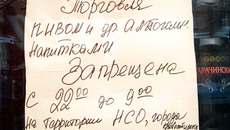 Торговля
пивом и др. алкогол.
напитками
Запрещена
с 22 00 до 9 00
на территории НСО, города